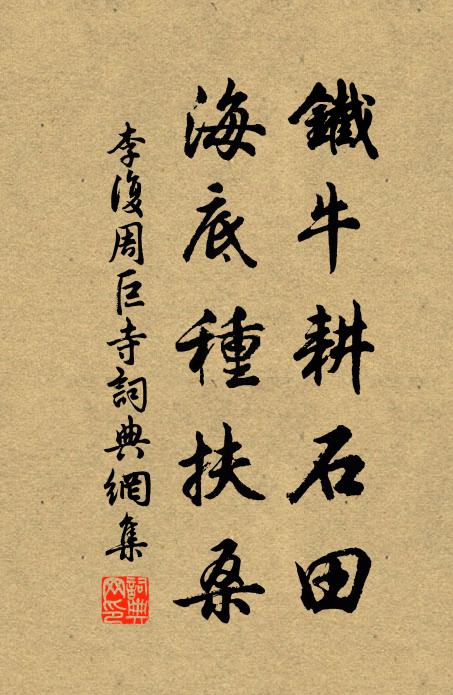 鐵牛耕石田
海底種扶桑
李復周巨寺詞典網集
詞典網印